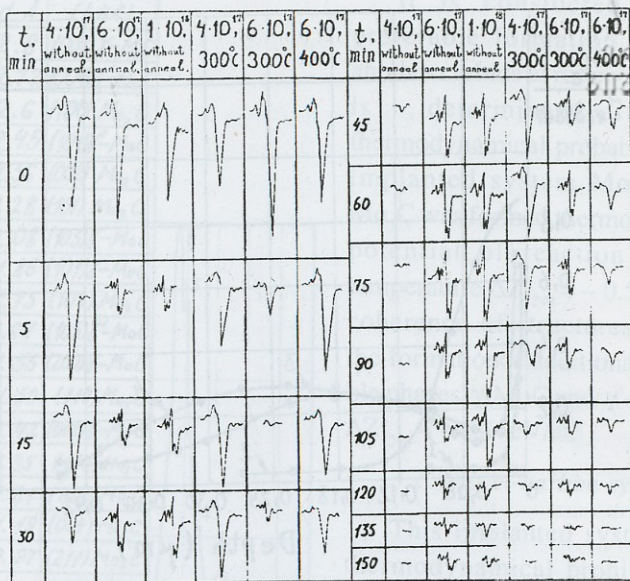 t, min
4·10¹⁷ without anneal.
6·10¹⁷ without anneal.
1·10¹⁸ without anneal.
4·10¹⁷ 300°C
6·10¹⁷ 300°C
6·10¹⁷ 400°C
0
5
15
30
t, min
4·10¹⁷ without anneal.
6·10¹⁷ without anneal.
1·10¹⁸ without anneal.
4·10¹⁷ 300°C
6·10¹⁷ 300°C
6·10¹⁷ 400°C
45
60
75
90
105
120
135
150